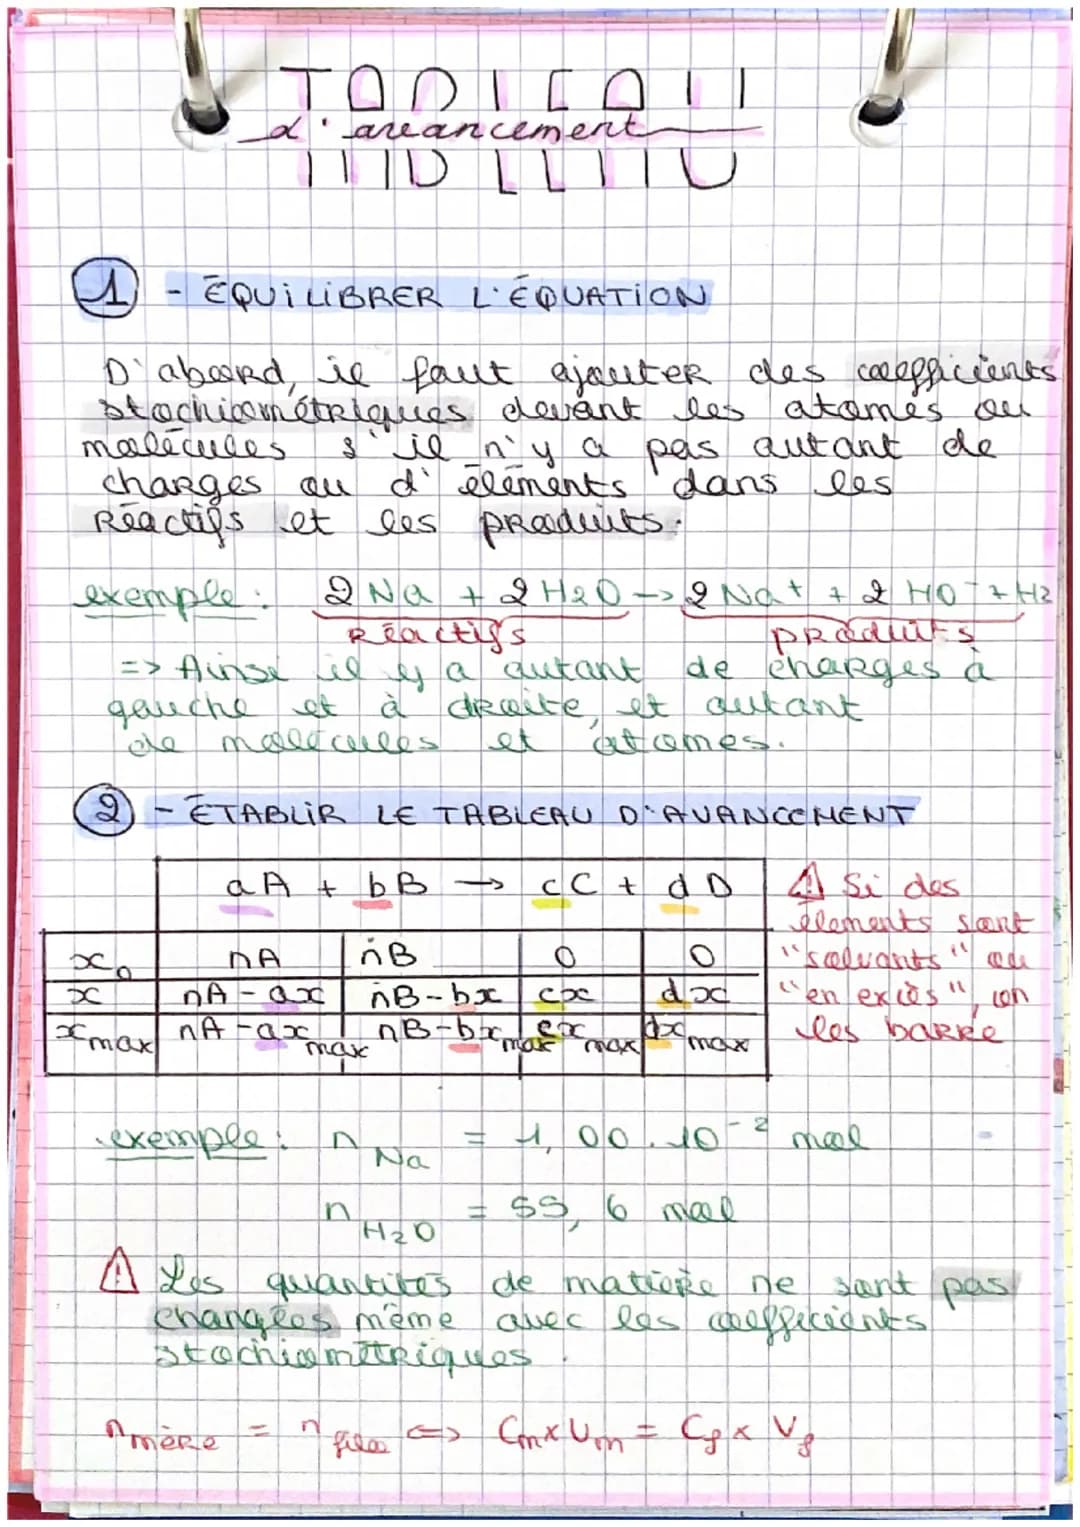 TABLEAU
d'avancement
1 - ÉQUILIBRER L'ÉQUATION
D'abord, il faut ajouter des coefficients
stochiométriques devant les atomes ou
molécules s'il n'y a pas autant de
charges ou d'éléments dans les
Réactifs et les produits.
exemple : 2 Na + 2 H2O -> 2 Na+ + 2 HO- + H2
Réactifs produits
=> Ainsi il y a autant de charges à
gauche et à droite, et autant
de molécules et atomes.
2 - ÉTABLIR LE TABLEAU D'AVANCEMENT
aA + bB -> cC + dD
x0 nA nB 0 0
x nA - ax nB - bx cx dx
xmax nA - axmax nB - bxmax cxmax dxmax
⚠ Si des
élements sont
"solvants" ou
"en excès", on
les barre
exemple : nNa = 1,00.10-² mol
nH2O = 55,6 mol
⚠ Les quantités de matière ne sont pas
changées même avec les coefficients
stochiométriques.
nmère = nfille <=> Cm x Vm = Cf x Vf